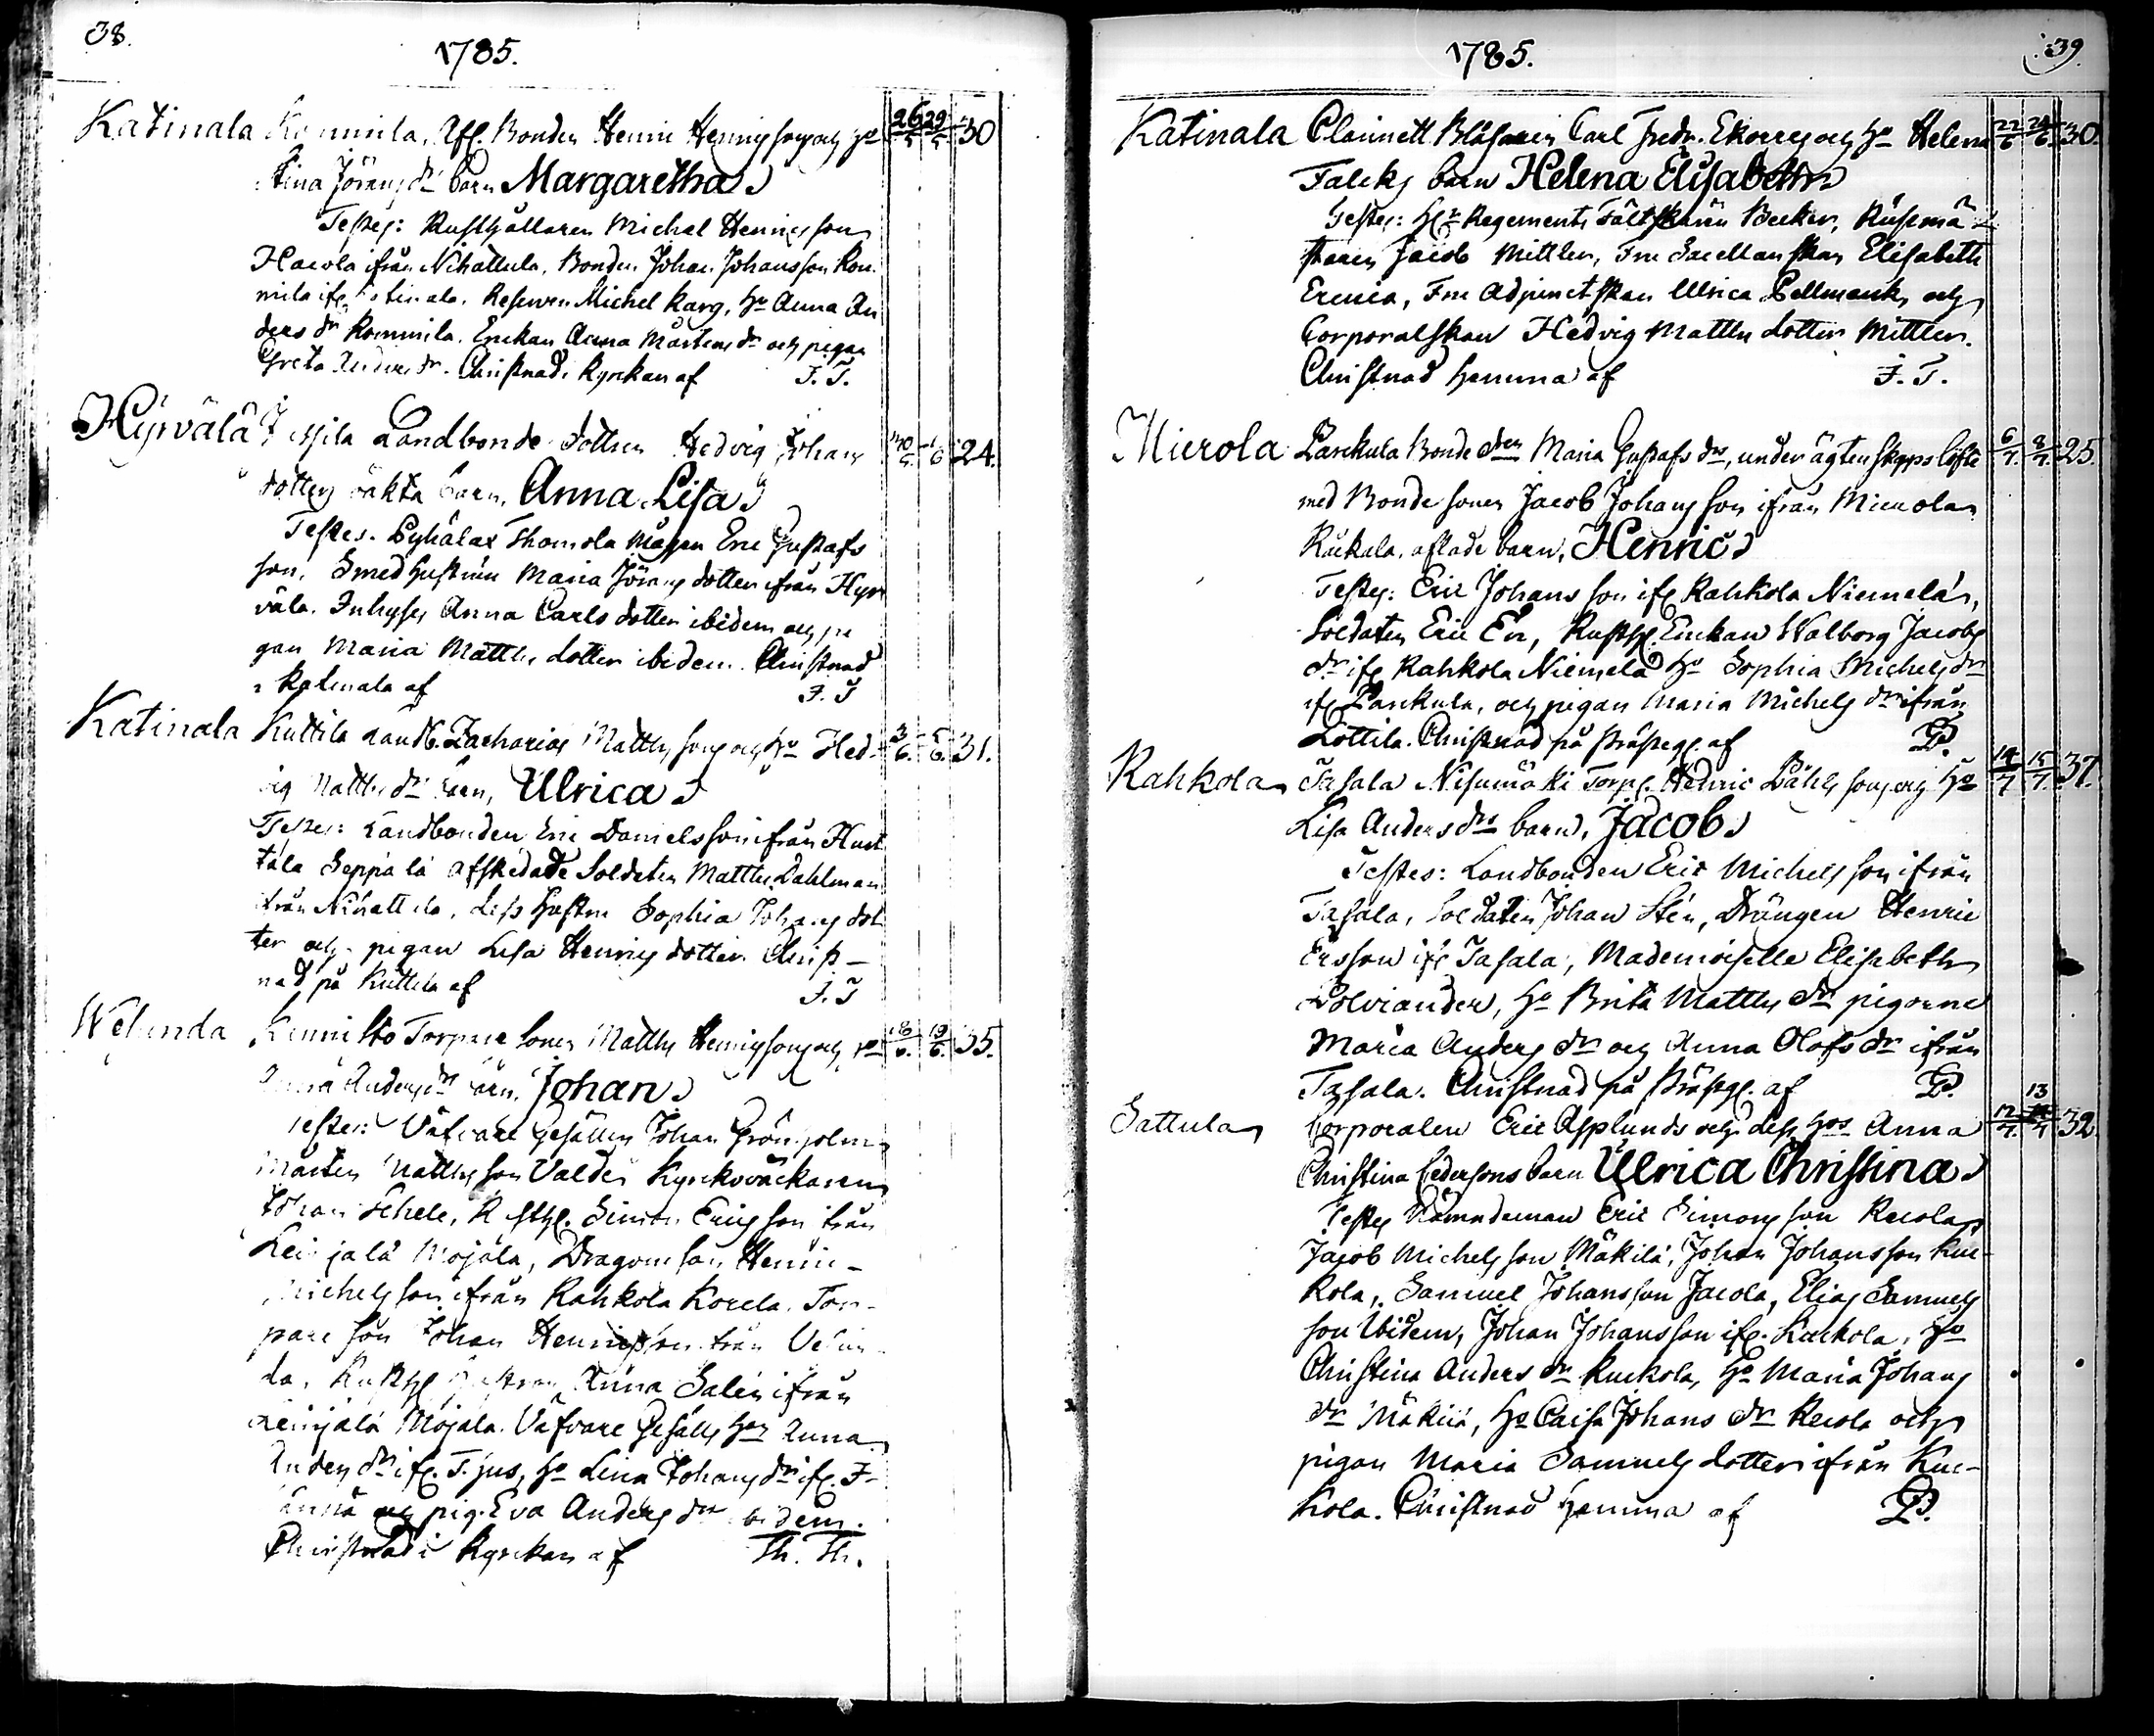 38.
1785.
Katinala Rommila, Afl. Bonden Henric Henrics sons och ho 26/5 29/5 30
Stina Jörans dr barn Margaretha
Testes: Rusthållaren Michel Henricsson
Haerola ifrån Nihattula, Bonden Johan Johansson Rom-
mila ifr. Katinala, Michel Karg, ho Anna An
ders dr Rommila, Enckan Anna Mårtens dr och pigan
Greta dr. Christnad i Kyrckan af J. T.
Hyrvälä Landbonde dottren Hedvig Johans 30/5 1/6 24.
dotters oäkta barn, Anna Lisa
Testes. Pyhälax Thomola Mågen Eric Gustafs
son, Smed hustrun Maria Jörans dotter ifrån Hyr
välä. Inhyses Anna Carls dotter ibidem och pi
gan Maria Matths dotter ibidem. Christnad
i Katinala af J. T
Katinala Kuttila Landb. Zacharias Matths sons och ho Hed- 3/6. 5/6. 31.
vig Matths dr barn, Ulrica
Testes: Landbonden Eric Danielsson ifrån Hurt
tala Seppälä afskedade Soldaten Matths Dahlman
ifrån Nihattula, dess hustru Sophia Johans dot
ter och pigan Lisa Henrics dotter. Christ-
nad på Kuttila af J. T
Welunda Kennistö Torpare sonen Matths Henricsons och ho 18/6. 19/6. 35.
Anna Anders dr barn, Johan
Testes: Väfvare Gesällen Johan Grönholm
Mårten Mattsson Valdis Kyrckoväckaren
Johan Schele, Rusth. Simon Ericsson från
Leinjälä Mojala, Dragon son Henric
Michelsson ifrån Rahkola Korela, Tor-
pare son Johan Henricsson från Velun-
da, Rusth. hustrun Anna Salin ifrån
Leinjälä Mojala. Väfvare Gesälls hon Anna
Anders dr ifr. ho Lena Johans dr ifr.
och pig. Eva Anders dr ibidem.
Christnad i Kyrckan af Th. Th.
1785. 39
Katinala Clarinett Blåsaren Carl Fredr. Ekorres och ho Helena 22/6 24/6. 30.
Falcks barn Helena Elisabeth
Testes: Hr Regements Fältskären Becker, Rusmä-
staren Jacob Mittler, Fru Sacellanskan Elisabeth
Erenia, Fru Adjunctskan Ulrica Pellmank, och
Corporalskan Hedvig Matths dotter Mittler.
Christnad hemma af J. T.
Mierola Parckula Bonde dren Maria Gustafs drs, under ägtenskaps löfte 6/7. 8/7. 25.
med Bonde sonen Jacob Johansson ifrån Mierola
Rückala, aflade barn, Henric
Testes: Eric Johansson ifr Rahkola Niemelä,
Soldaten Eric En, Rusth. Enckan Walborg Jacobs
dr ifr Rahkola Niemelä ho Sophia Michels dr
ifr Parckula, och pigan Maria Michels dr ifrån
Lottila. Christnad på Prästeg. af P.
Rahkola Tasala Nisumäki Torp. Henric Påhls sons och ho 14/7 15/7. 37.
Lisa Anders drs barn, Jacob
Testes: Landbonden Eric Michels son ifrån
Tasala, Soldaten Johan Stén, Drängen Henric
Ersson ifr Tasala, Mademoiselle Elisabeth
Polviander, ho Brita Matths dr pigorne
Maria Anders dr och Anna Olofs dr ifrån
Tasala. Christnad på Prästg. af P.
Sattula Corporalen Eric Asplunds och dess hos Anna 12/7. 13 14/7 32.
Christina Pedersons barn Ulrica Christina
Testes Nämndeman Eric Simons son Recola
Jacob Michelsson Mäkilä, Johan Johansson Kuc-
kola, Samuel Johansson Jacola, Elias Samuels
son Ibidem, Johan Johansson ifr. Kuckola, ho
Christina Anders dr Kuckola, ho Maria Johans
dr Mäkilä, ho Caisa Johans dr Recola och
pigan Maria Samuels dotter ifrån Kuc-
kola. Christnad hemma af P.